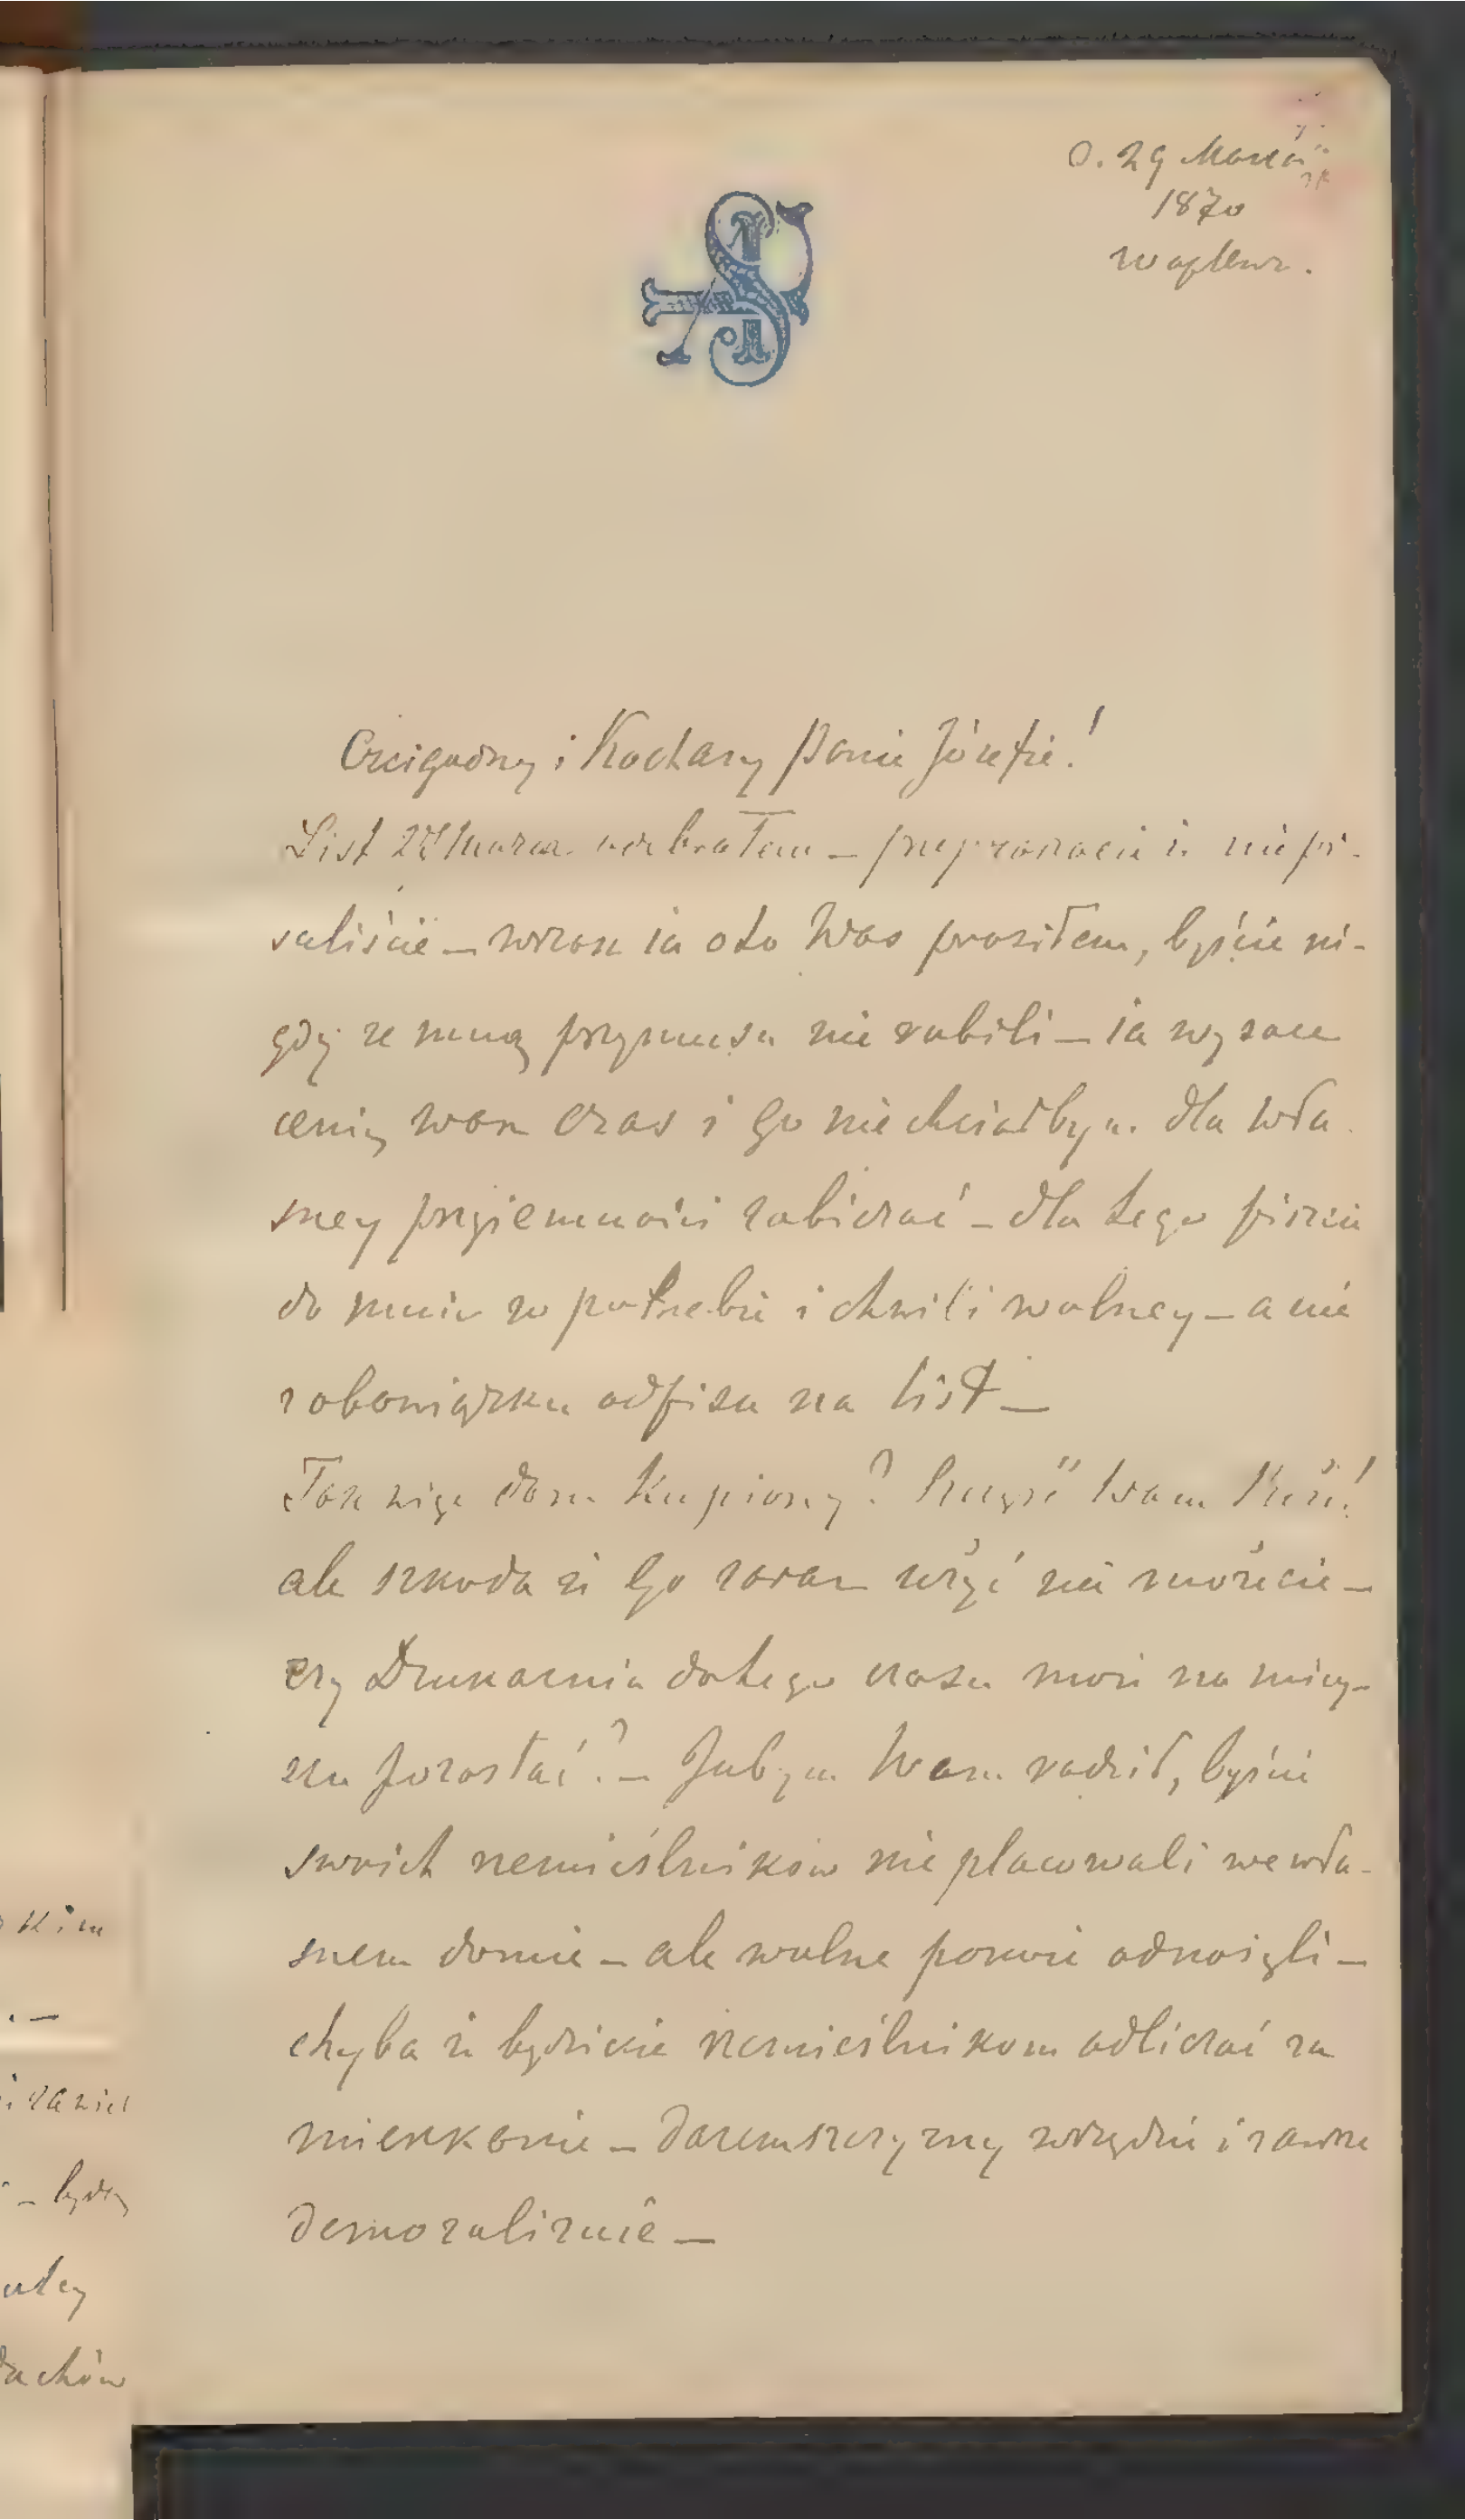 D. 29 Marca
1870
Waplewo.
Czcigodny i Kochany Panie Józefie!
List 27 Marca odebrałem – przepraszacie że nie pi-
saliście – wszak ia oto Was prosiłem, byście ni-
gdy ze mną przymusu nie robili – ia wysoce
cenię wasz czas i go nie chciałbym dla wła
sney przyiemności zabierać – dla tego piszcie
do mnie w potrzebie i chwili wolney – a nie
z obowiązku odpisu na list –
Tak więc dom kupiony? Szczęść Wam Boże!
ale szkoda że go zaraz użyć nie możecie –
czy Drukarnia do tego czasu może na miey-
scu pozostać? – Jabym Wam radził, byście
swoich rzemieślników nie placowali we wła-
snem domie – ale wolne pomoc odnosili –
chyba że będziecie rzemieślnikom odliczać za
mieszkanie –
demoralizuie –
kim
. –
– będą
dachów